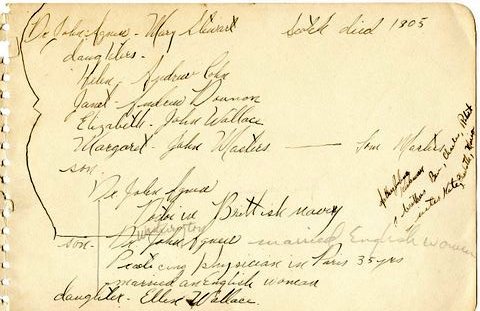 Dr John Agnew - Mary Stewart Scotch died 1805
daughters.
Helen, Andrew Cohn
Janet Andrew Dounon
Elizabeth - John Wallace
Margaret - John Masters — Tom Masters
son.
Dr John Agnew
in Brittish navy
son. Dr John Agnew married English women
Practicing physician in Paris 35 yrs
married an English woman
daughter - Ellen Wallace.